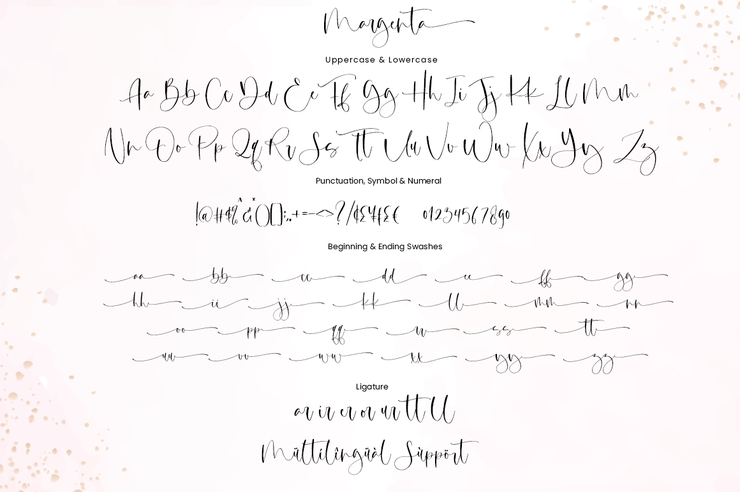 Margenta
Uppercase & Lowercase
Aa Bb Cc Dd Ee Ff Gg Hh Ii Jj Kk Ll Mm
Nn Oo Pp Qq Rr Ss Tt Uu Vv Ww Xx Yy Zz
Punctuation, Symbol & Numeral
0123456789
Beginning & Ending Swashes
aa bb cc dd ee ff gg
hh ii jj kk ll mm nn
oo pp qq rr ss tt
uu vv ww xx yy zz
Ligature
ar ir er or ur tt ll
Mültilîngüàl Süppôrt